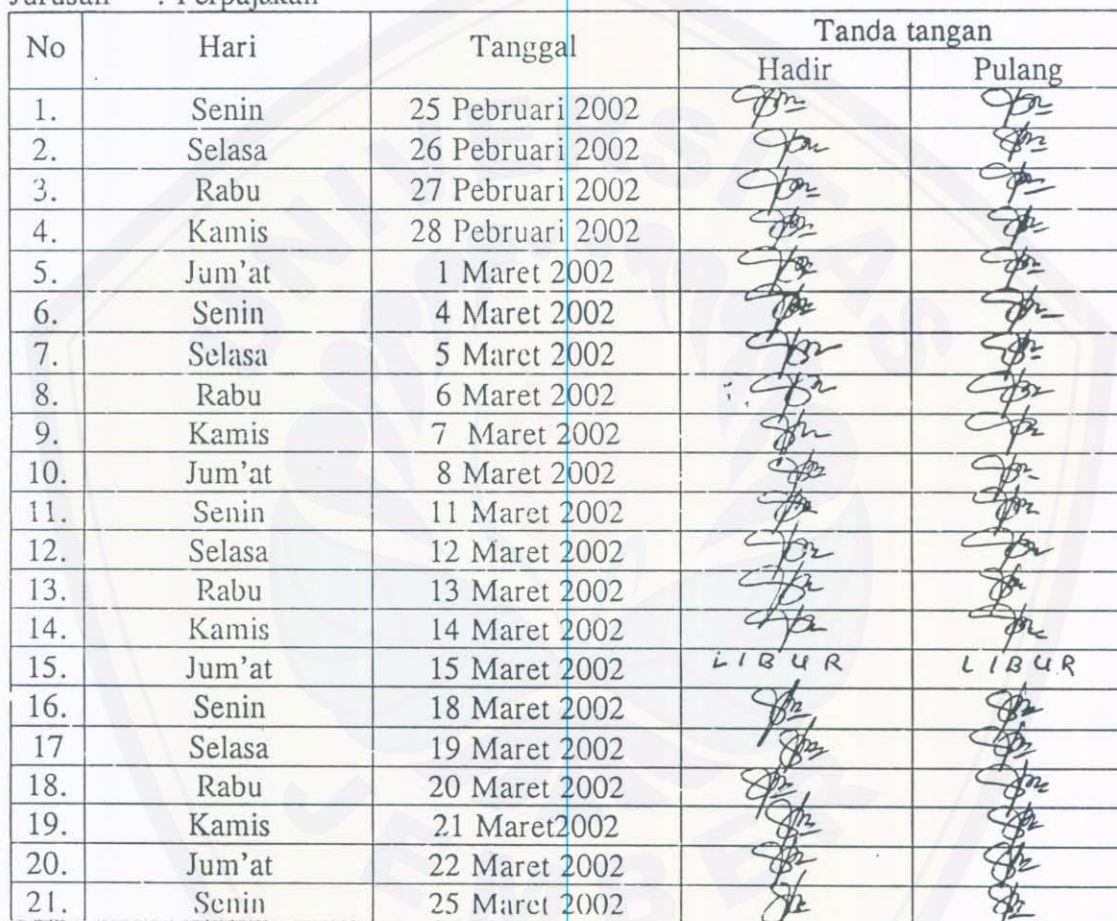 Jurusan : Perpajakan
No Hari Tanggal Tanda tangan
Hadir Pulang
1. Senin 25 Pebruari 2002
2. Selasa 26 Pebruari 2002
3. Rabu 27 Pebruari 2002
4. Kamis 28 Pebruari 2002
5. Jum'at 1 Maret 2002
6. Senin 4 Maret 2002
7. Selasa 5 Maret 2002
8. Rabu 6 Maret 2002
9. Kamis 7 Maret 2002
10. Jum'at 8 Maret 2002
11. Senin 11 Maret 2002
12. Selasa 12 Maret 2002
13. Rabu 13 Maret 2002
14. Kamis 14 Maret 2002
15. Jum'at 15 Maret 2002 LIBUR LIBUR
16. Senin 18 Maret 2002
17 Selasa 19 Maret 2002
18. Rabu 20 Maret 2002
19. Kamis 21 Maret2002
20. Jum'at 22 Maret 2002
21. Senin 25 Maret 2002
UNIVERSITAS
JEMBER